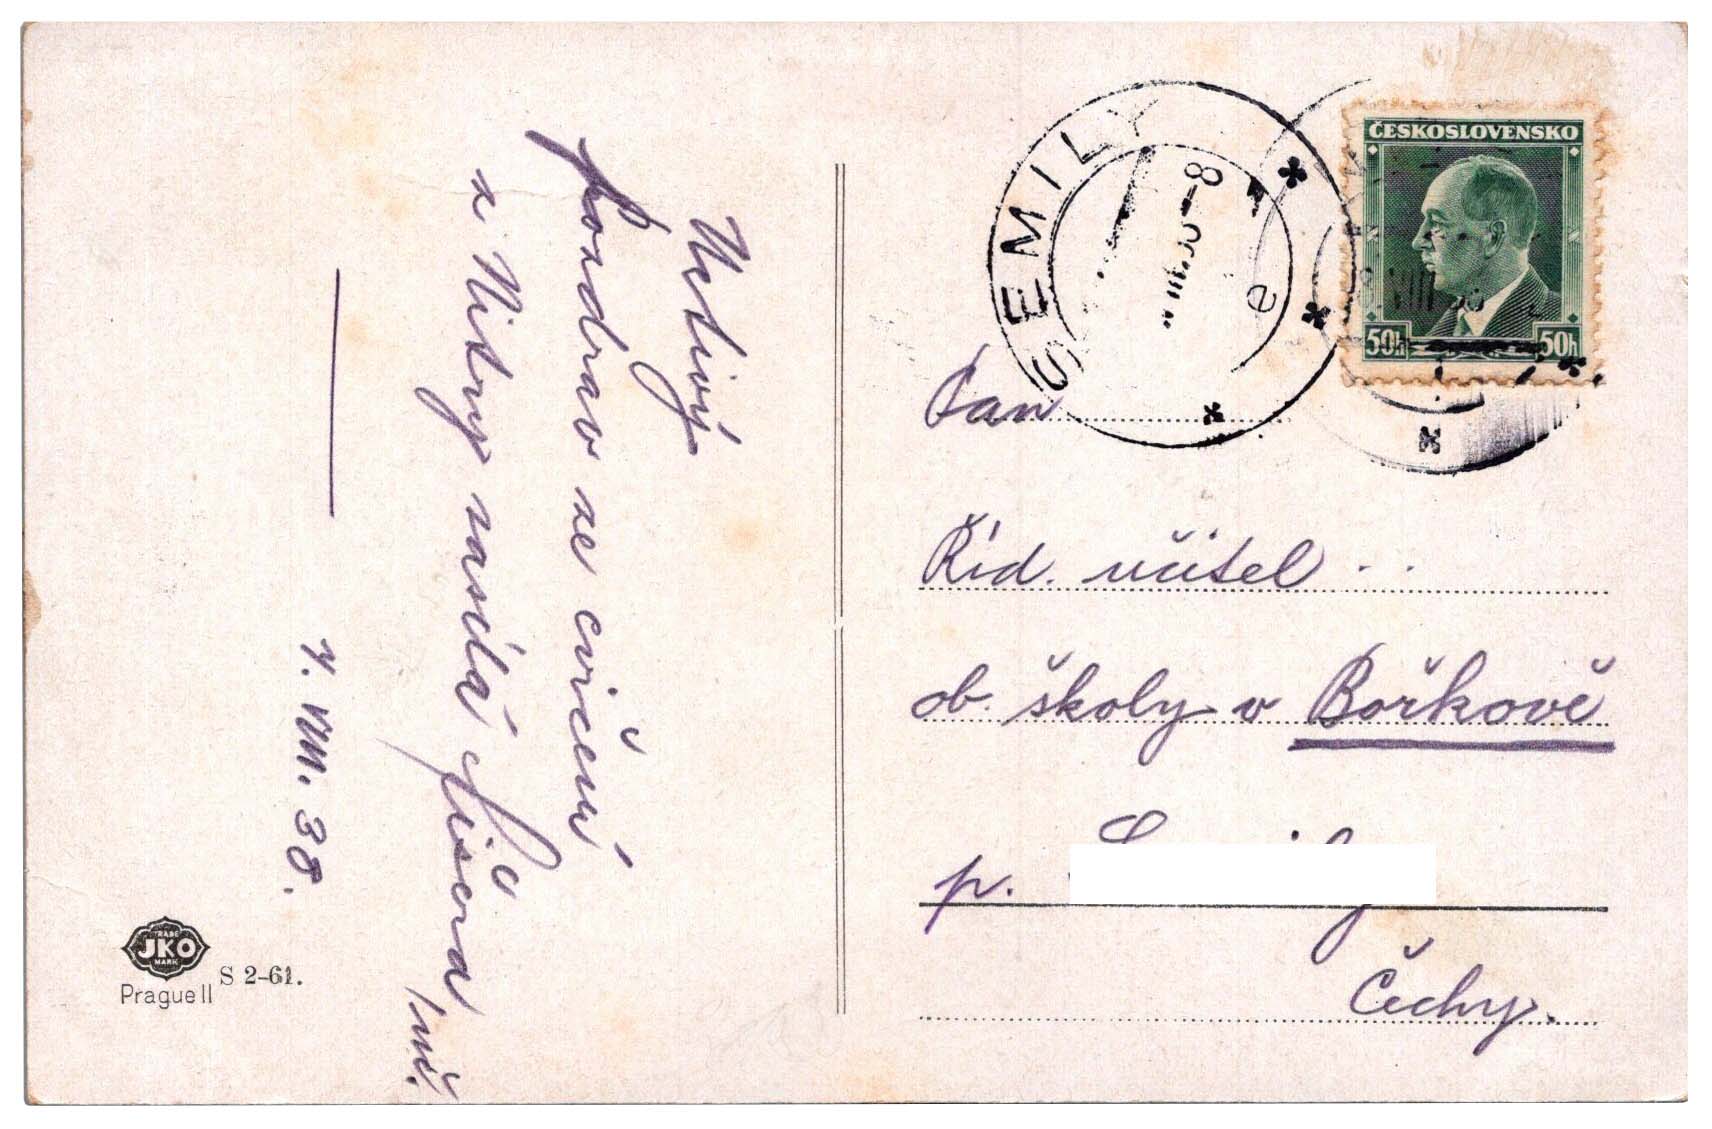 Uctivý
pozdrav ze cvičení
z Nitry zasílá Fišera
7. VIII. 38.
JKO
TRADE
MARK
Prague II
S 2-61.
SEMILY
8
e
ČESKOSLOVENSKO
50h
50h
Pan
Říd. učitel ..
ob. školy v Bořkově
p.
Čechy.